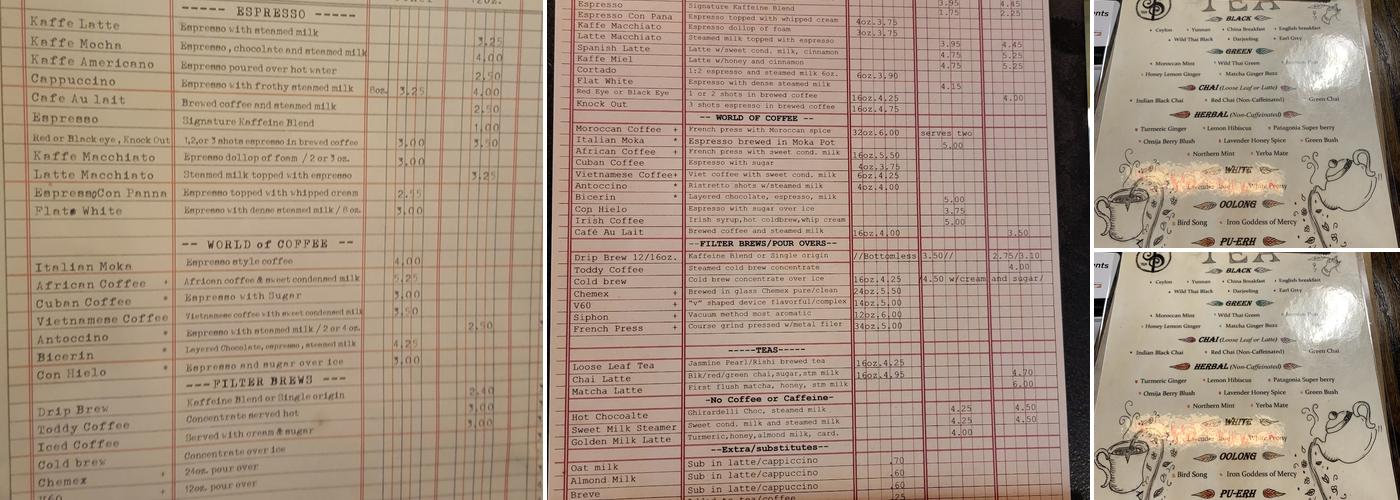 ---- ESPRESSO ----
Kaffe Latte Espresso with steamed milk 3.25
Kaffe Mocha Espresso, chocolate and steamed milk 4.00
Kaffe Americano Espresso poured over hot water 2.50
Cappuccino Espresso with frothy steamed milk 8oz. 3.25 4.00
Cafe Au lait Brewed coffee and steamed milk 2.50
Espresso Signature Kaffeine Blend 1.00
Red or Black eye, Knock Out 1,2,or 3 shots espresso in brewed coffee 3.00 3.50
Kaffe Macchiato Epresso dollop of foam / 2 or 3 oz. 3.00
Latte Macchiato Steamed milk topped with espresso 3.25
EspressoCon Panna Espresso topped with whipped cream 2.55
Flat White Espresso with dense steamed milk / 6 oz. 3.00
-- WORLD of COFFEE --
Italian Moka Espresso style coffee 4.00
African Coffee + African coffee & sweet condensed milk 5.25
Cuban Coffee * Espresso with Sugar 3.00
Vietnamese Coffee Vietnamese coffee with sweet condensed milk 3.50
Antoccino Espresso with steamed milk / 2 or 4 oz. 2.50
Bicerin * Layered Chocolate, espresso, steamed milk 4.25
Con Hielo * Espresso and sugar over ice 3.00
---FILTER BREWS ---
Drip Brew Kaffeine Blend or Single origin 2.40
Toddy Coffee Concentrate served hot 3.00
Iced Coffee Served with cream & sugar 3.00
Cold brew Concentrate over ice
Chemex + 24oz. pour over
V60 + 12oz. pour over
Espresso Signature Kaffeine Blend 3.95 4.45
Espresso Con Pana Espresso topped with whipped cream 1.75 2.25
Kaffe Macchiato Espresso dollop of foam 4oz.3.75
Latte Macchiato Steamed milk topped with espresso 3oz.3.75
Spanish Latte Latte w/sweet cond. milk, cinnamon 3.95 4.45
Kaffe Miel Latte w/honey and cinnamon 4.75 5.25
Cortado 1:2 espresso and steamed milk 6oz. 4.75 5.25
Flat White Espresso with dense steamed milk 6oz.3.90
Red Eye or Black Eye 1 or 2 shots in brewed coffee 4.15
Knock Out 3 shots espresso in brewed coffee 16oz.4.25 4.00
16oz.4.75
-- WORLD OF COFFEE --
Moroccan Coffee + French press with Moroccan spice 32oz.6.00 serves two
Italian Moka * Espresso brewed in Moka Pot 5.00
African Coffee + French press with sweet cond. milk 16oz.5.50
Cuban Coffee Espresso with sugar 4oz.3.75
Vietnamese Coffee+ Viet coffee with sweet cond. milk 6oz.4.25
Antoccino * Ristretto shots w/steamed milk 4oz.4.00
Bicerin * Layered chocolate, espresso, milk 5.00
Cop Hielo Espresso with sugar over ice 3.75
Irish Coffee Irish syrup,hot coldbrew,whip cream 5.00
Café Au Lait Brewed coffee and steamed milk 16oz.4.00 3.50
--FILTER BREWS/POUR OVERS--
Drip Brew 12/16oz. Kaffeine Blend or Single origin //Bottomless 3.50// 2.75/3.10
Toddy Coffee Steamed cold brew concentrate 4.00
Cold brew Cold brew concentrate over ice 16oz.4.25 4.50 w/cream and sugar/
Chemex + Brewed in glass Chemex pure/clean 24oz.5.50
V60 + "v" shaped device flavorful/complex 14oz.5.00
Siphon + Vacuum method most aromatic 12oz.6.00
French Press + Course grind pressed w/metal filer 34oz.5.00
-----TEAS-----
Loose Leaf Tea Jasmine Pearl/Rishi brewed tea 16oz.4.25
Chai Latte Blk/red/green chai,sugar,stm milk 16oz.4.95 4.70
Matcha Latte First flush matcha, honey, stm milk 6.00
-No Coffee or Caffeine-
Hot Chocoalte Ghirardelli Choc, steamed milk 4.25 4.50
Sweet Milk Steamer Sweet cond. milk and steamed milk 4.25 4.50
Golden Milk Latte Turmeric,honey,almond milk, card. 4.00
--Extra/substitutes--
Oat milk Sub in latte/cappiccino .70
Almond Milk Sub in latte/cappuccino .60
Breve Sub in latte/cappuccino .60
.25
TEA
BLACK
Ceylon Yunnan China Breakfast English breakfast
Wild Thai Black Darjeeling Earl Grey
GREEN
Moroccan Mint Wild Thai Green
Honey Lemon Ginger Matcha Ginger Buzz
CHAI (Loose Leaf or Latte)
Indian Black Chai Red Chai (Non-Caffeinated) Green Chai
HERBAL (Non-Caffeinated)
Turmeric Ginger Lemon Hibiscus Patagonia Super berry
Omija Berry Blush Lavender Honey Spice Green Bush
Northern Mint Yerba Mate
WHITE
White Peony
OOLONG
Bird Song Iron Goddess of Mercy
PU-ERH
TEA
BLACK
Ceylon Yunnan China Breakfast English breakfast
Wild Thai Black Darjeeling Earl Grey
GREEN
Moroccan Mint Wild Thai Green
Honey Lemon Ginger Matcha Ginger Buzz
CHAI (Loose Leaf or Latte)
Indian Black Chai Red Chai (Non-Caffeinated) Green Chai
HERBAL (Non-Caffeinated)
Turmeric Ginger Lemon Hibiscus Patagonia Super berry
Omija Berry Blush Lavender Honey Spice Green Bush
Northern Mint Yerba Mate
WHITE
White Peony
OOLONG
Bird Song Iron Goddess of Mercy
PU-ERH